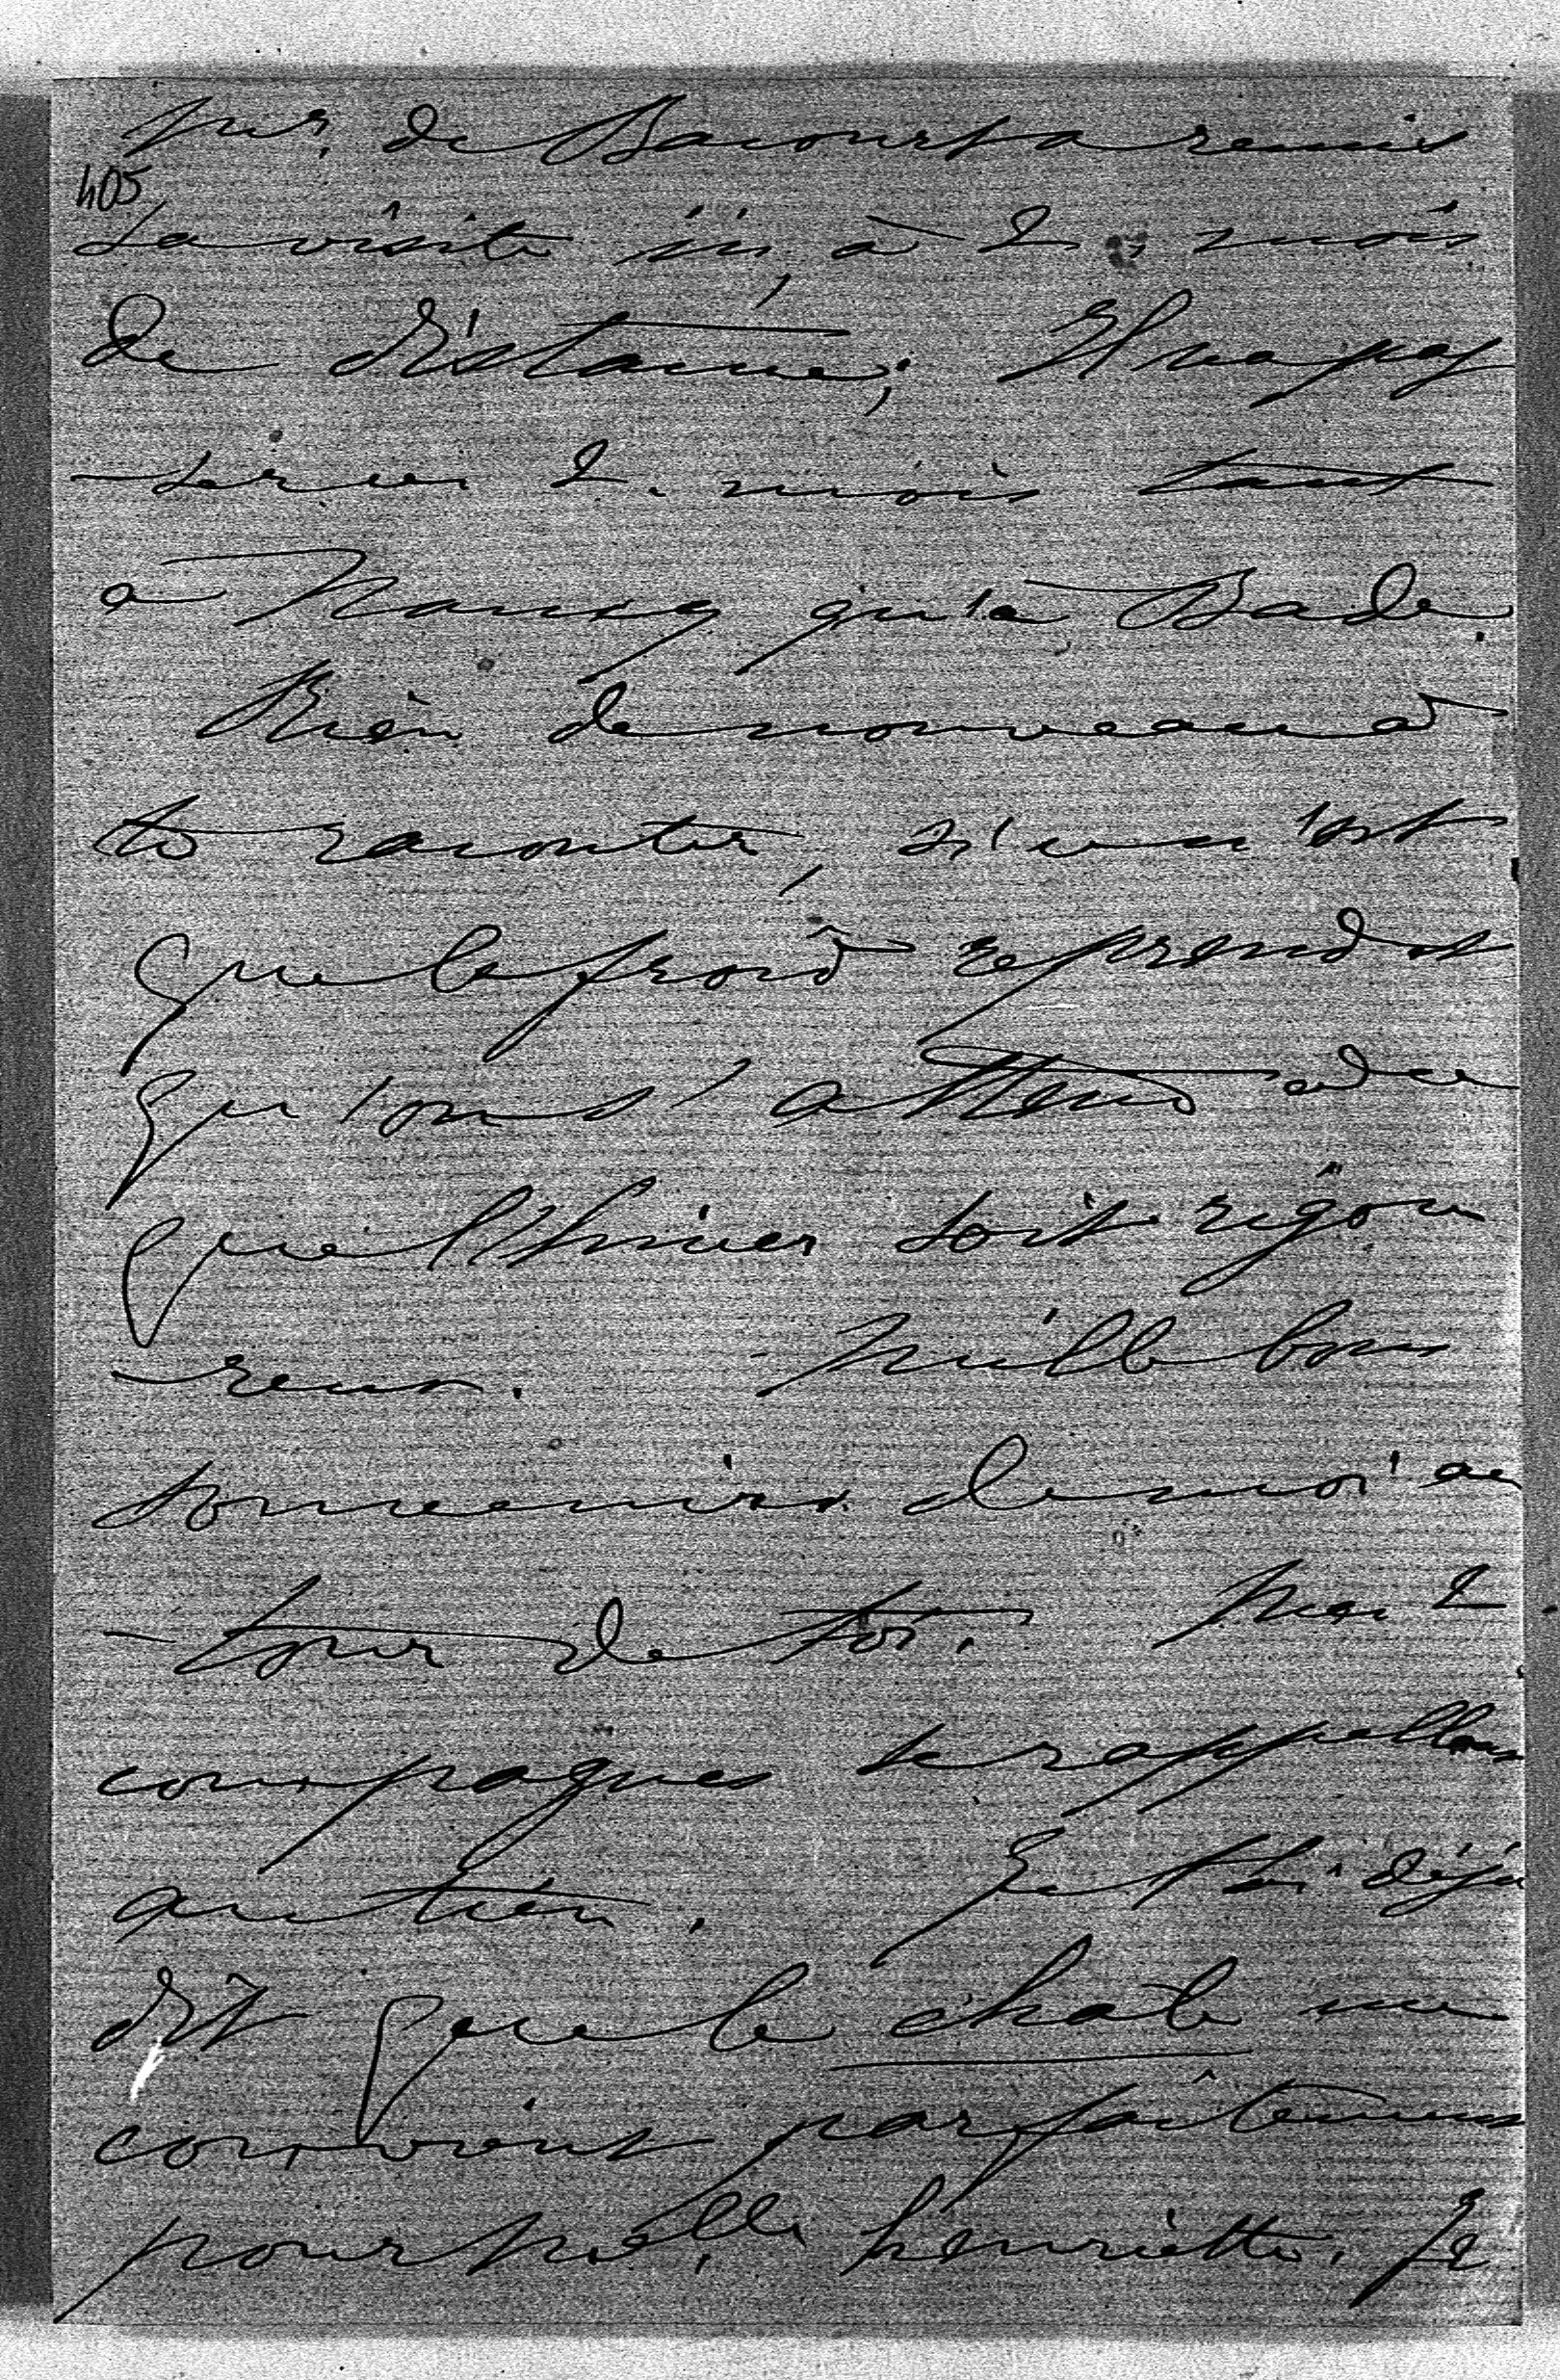 Mr. de Bacourt a remis
405
sa visite ici, à 2. mois
de distance; Il va pas
-ser ces 2. mois tant
à Nancy qu'à Bade.
Rien de nouveau à
te raconter, si ce n'est
que le froid reprend et
qu'on s'attend à ce
que l'hiver soit rigou
-reux. Mille bons
souvenirs de moi au
-tour de toi. Mes 2.
compagnes se rappellent
au tien. Je t'ai déjà
dit que le châle me
convient parfaitement
pour Melle. henriette. Je